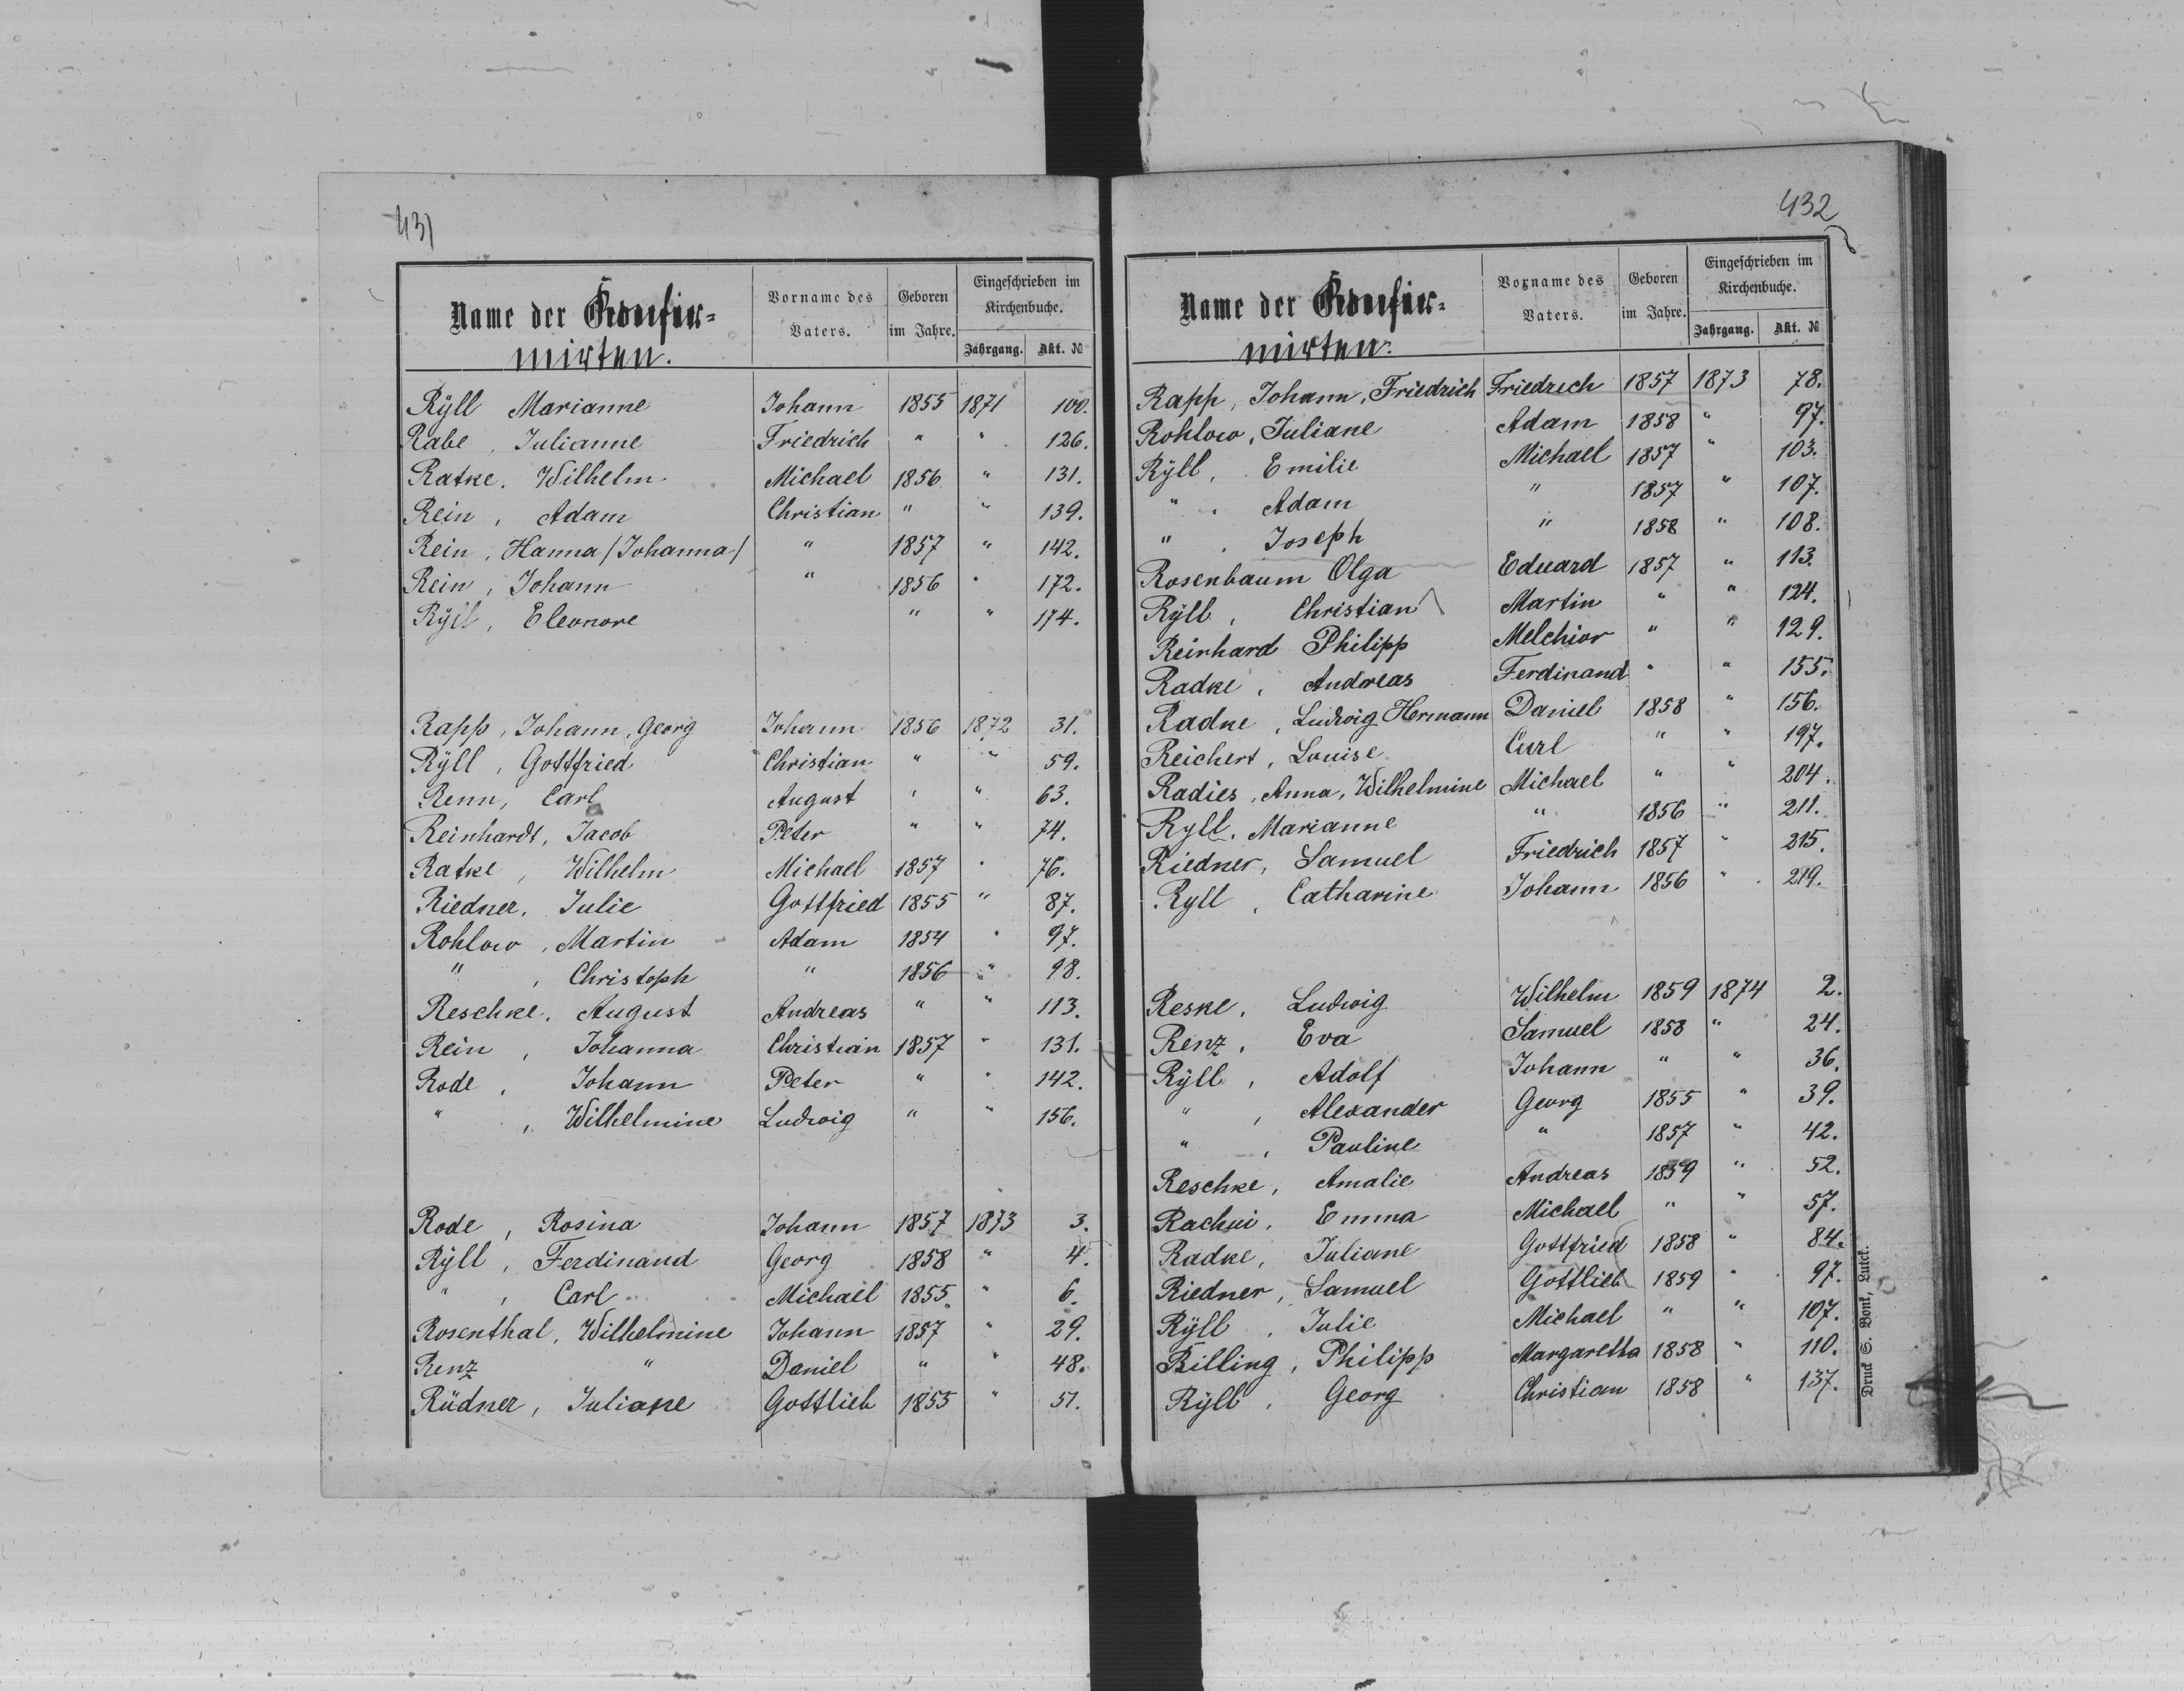 431
Name der Konfir=
mirten.
Vorname des
Vaters.
Geboren
im Jahre.
Eingeschrieben im
Kirchenbuche.
Jahrgang. Akt. №
Rÿll Marianne Johann 1855 1871 100.
Rabe, Julianne Friedrich " " 126.
Ratke. Wilhelm Michael 1856 " 131.
Rein, Adam Christian " " 139.
Rein, Hanna /Johanna/ " 1857 " 142.
Rein, Johann " 1856 " 172.
Rÿll, Eleonore " " 174.
Rapp, Johann, Georg Johann 1856 1872 31.
Rÿll, Gottfried Christian " " 59.
Renn, Carl August " " 63.
Reinhardt, Jacob Peter " " 74.
Ratke, Wilhelm Michael 1857 " 76.
Riedner, Julie Gottfried 1855 " 87.
Rohlow, Martin Adam 1854 " 97.
" , Christoph " 1856 " 98.
Reschke, August Andreas " " 113.
Rein, Johanna Christian 1857 " 131.
Rode, Johann Peter " " 142.
" , Wilhelmine Ludwig " " 156.
Rode, Rosina Johann 1857 1873 3.
Rÿll, Ferdinand Georg 1858 " 4.
" , Carl Michael 1855. " 6.
Rosenthal, Wilhelmine Johann 1857 " 29.
Renz " Daniel " " 48.
Rüdner, Juliane Gottlieb 1855 " 51.
432
Name der Konfir=
mirten.
Vorname des
Vaters.
Geboren
im Jahre.
Eingeschrieben im
Kirchenbuche.
Jahrgang. Akt. №
Rapp, Johann, Friedrich Friedrich 1857 1873 78.
Rohlow, Juliane Adam 1858 " 97.
Rÿll, Emilie Michael 1857 " 103.
" , Adam " 1857 " 107.
" , Joseph " 1858 " 108.
Rosenbaum Olga Eduard 1857 " 113.
Rÿll, Christian Martin " " 124.
Reinhard Philipp Melchior " " 129.
Radke, Andreas Ferdinand " " 155.
Radke, Ludwig Hermann Daniel 1858 " 156.
Reichert, Louise Carl " " 197.
Radies, Anna, Wilhelmine Michael " " 204.
Ryll. Marianne " 1856 " 211.
Riedner, Samuel Friedrich 1857 " 215.
Ryll, Catharine Johann 1856 " 219.
Reske, Ludwig Wilhelm 1859 1874 2.
Renz, Eva Samuel 1858 " 24.
Rÿll, Adolf Johann " " 36.
" , Alexander Georg 1855 " 39.
" , Pauline " 1857 " 42.
Reschke, Amalie Andreas 1859 " 52.
Rachui, Emma Michael " " 57.
Radke, Juliane Gottfried 1858 " 84.
Riedner, Samuel Gottlieb 1859 " 97.
Rÿll, Julie Michael " " 107.
Billing, Philipp Margaretha 1858 " 110.
Rÿll, Georg Christian 1858 " 137.
Druck S. Bonk, Luck.